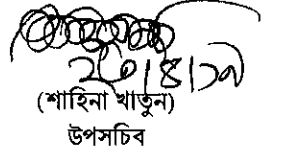 ২৩।৪।১৯
(শাহিনা খাতুন)
উপসচিব